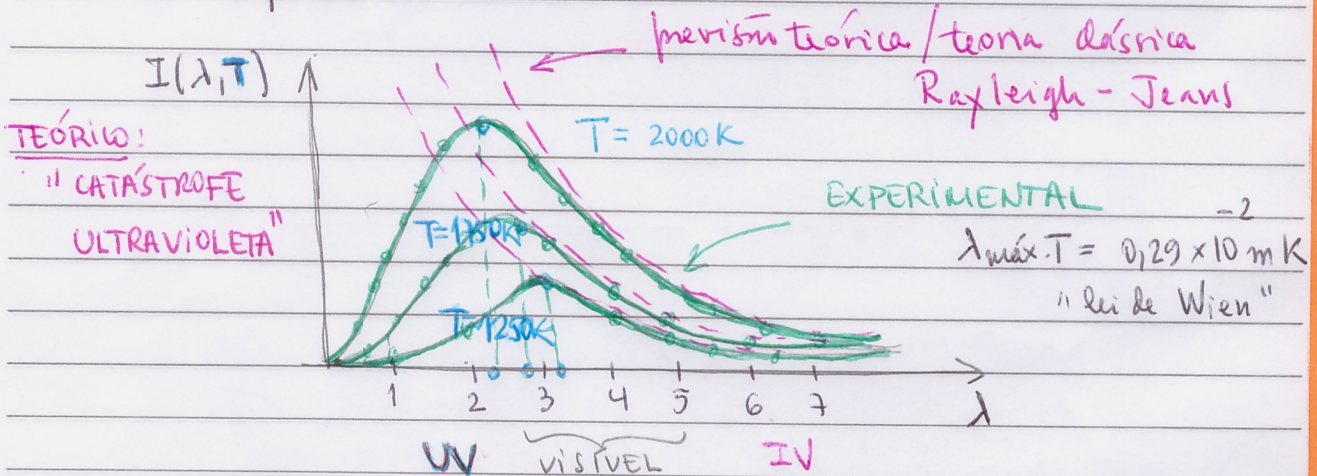 previsão teórica / teoria clássica
Rayleigh - Jeans
I(λ,T)
TEÓRICO:
"CATÁSTROFE
ULTRAVIOLETA"
T = 2000K
EXPERIMENTAL
T=1750K
λmáx.T = 0,29 × 10⁻² m K
"lei de Wien"
T=1250K
1 2 3 4 5 6 7 λ
UV VISÍVEL IV